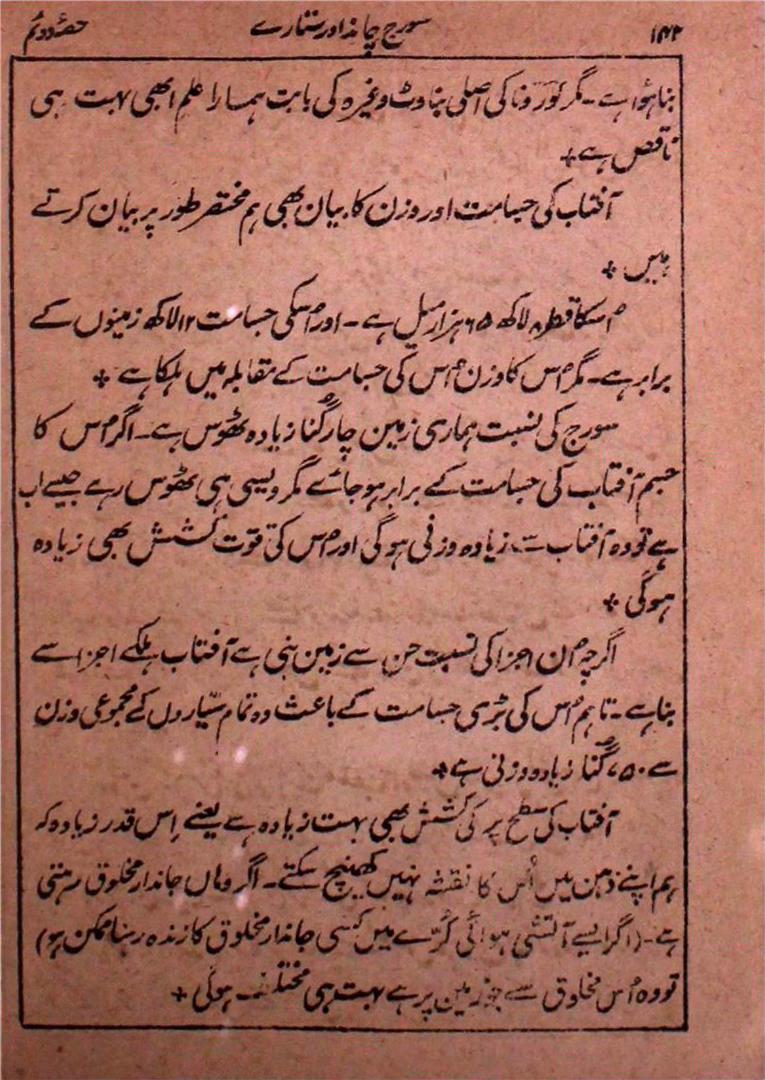 ۱۴۲ سورج چاند اور ستارے حصۂ دوئم
بنا ہؤا ہے۔ مگر کورونا کی اصلی بناوٹ وغیرہ کی بابت ہمارا علم ابھی بہت ہی
ناقص ہے +
آفتاب کی جسامت اور وزن کا بیان بھی ہم مختصر طور پر بیان کرتے
ہیں +
اُسکا قطر ۸ لاکھ ۶۵ ہزار میل ہے۔ اور اُسکی جسامت ۱۲ لاکھ زمینوں کے
برابر ہے۔ مگر اُس کا وزن اُس کی جسامت کے مقابلہ میں ہلکا ہے +
سورج کی نسبت ہماری زمین چار گُنا زیادہ ٹھوس ہے۔ اگر اُس کا
جسم آفتاب کی جسامت کے برابر ہو جائے مگر ویسی ہی ٹھوس رہے جیسے اب
ہے تو وہ آفتاب سے زیادہ وزنی ہو گی اور اُس کی قوت کشش بھی زیادہ
ہوگی +
اگرچہ اُن اجزا کی نسبت جن سے زمین بنی ہے آفتاب ہلکے اجزا سے
بنا ہے۔ تاہم اُس کی بڑی جسامت کے باعث وہ تمام سیّاروں کے مجموعی وزن
سے ۷۵۰ گُنا زیادہ وزنی ہے +
آفتاب کی سطح پر کی کشش بھی بہت زیادہ ہے یعنے اِس قدر زیادہ کہ
ہم اپنے ذہن میں اُس کا نقشہ نہیں کھینچ سکتے۔ اگر وہاں جاندار مخلوق رہتی
ہے۔ (اگر ایسے آتشی ہوائی کُرّے میں کسی جاندار مخلوق کا زندہ رہنا ممکن ہو)
تو وہ اُس مخلوق سے جو زمین پر ہے بہت ہی مختلف ہوگی +